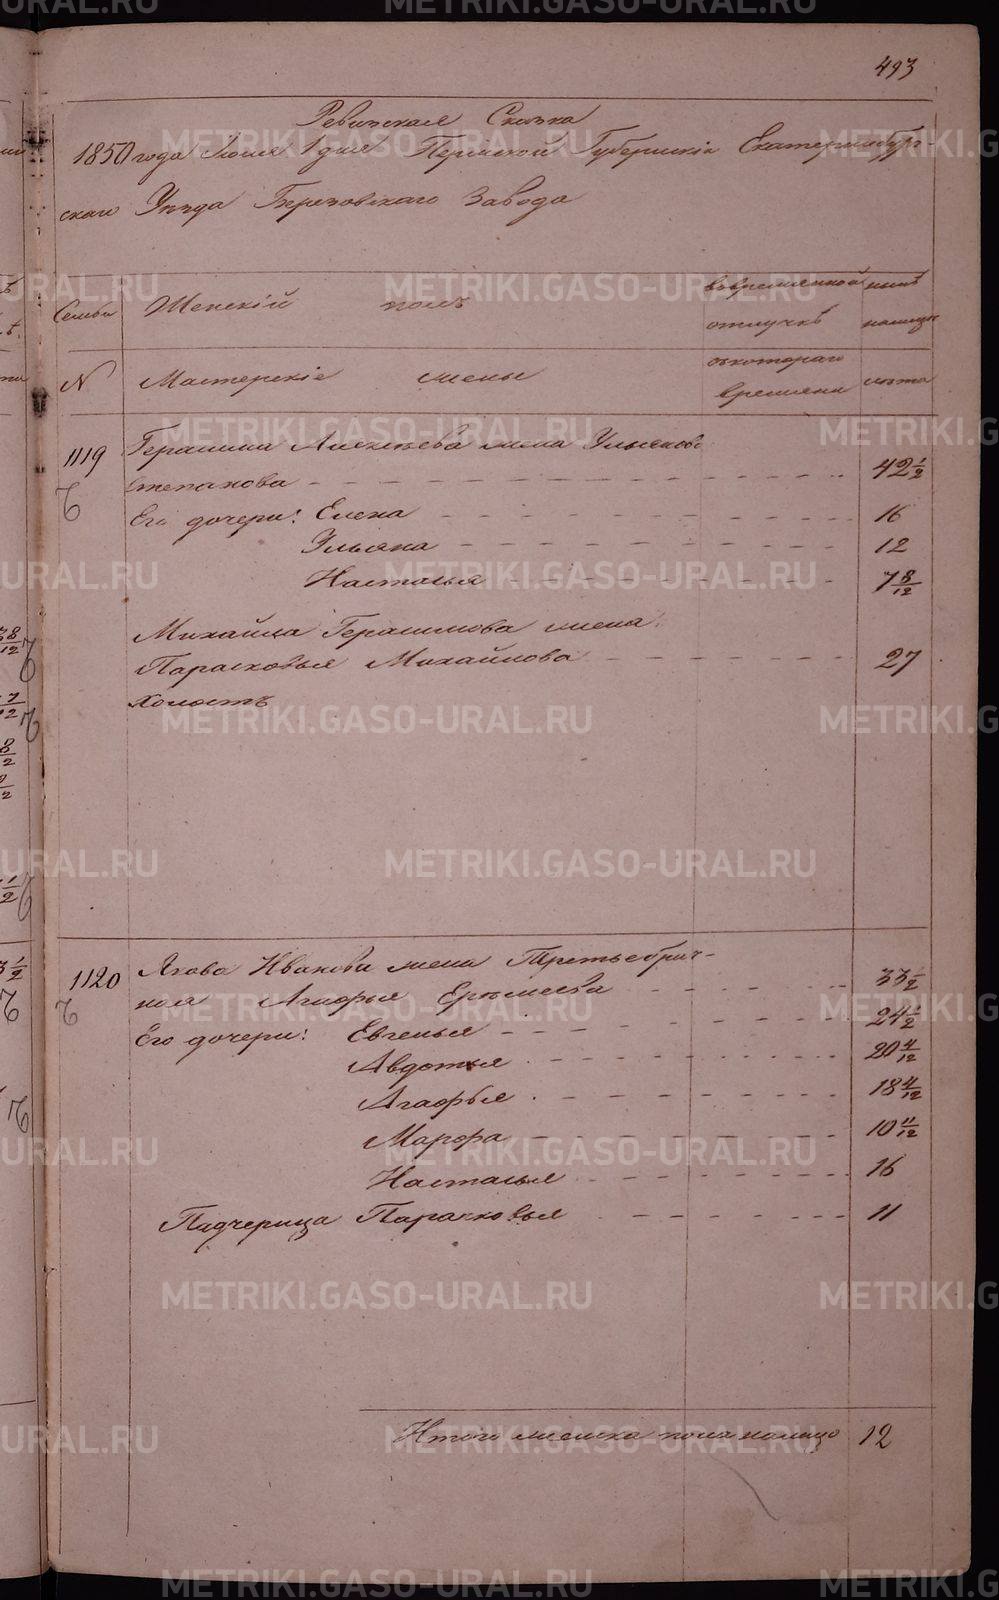 493
Ревизская Сказка
1850 года Июля 1 дня Пермской Губернскiи Екатеринбург-
скаго Уѣзда Березовскаго Завода
Семьи Женскiй полъ вовременной нынѣ
отлучкѣ налицо
съкотораго
N Мастерскiе жены времяни лѣта
1119 Герасима Алексѣева жена Ульяново
Степанова 42 1/2
Его дочери: Елена 16
Ульяна 12
Насталья 7 8/12
Михайла Герасимова жена
Парасковья Михайлова 27
Холостъ
1120 Якова Иванова жена Третьебрач-
ная Агафья Ерѣмѣева 33 1/2
Его дочери: Евгенья 24 1/2
Авдотья 20 4/12
Агафья 18 4/12
Марфа 10 11/12
Насталья 16
Падчерица Парасковья 11
Итого женска пола налицо 12
METRIKI.GASO-URAL.RU